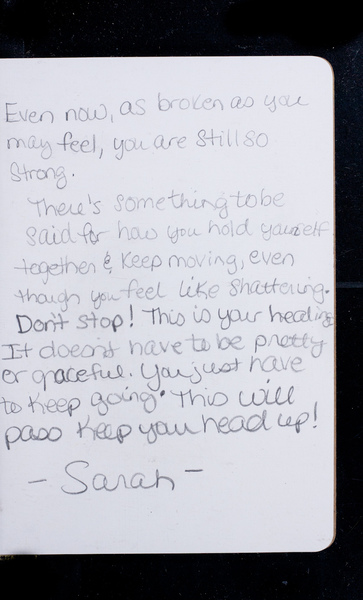 Even now, as broken as you
may feel, you are still so
strong.
There's something to be
said for how you hold yourself
together & keep moving, even
though you feel like shattering.
Don't stop! This is your healing
It doesn't have to be pretty
or graceful. You just have
to keep going. This will
pass keep your head up!
- Sarah -